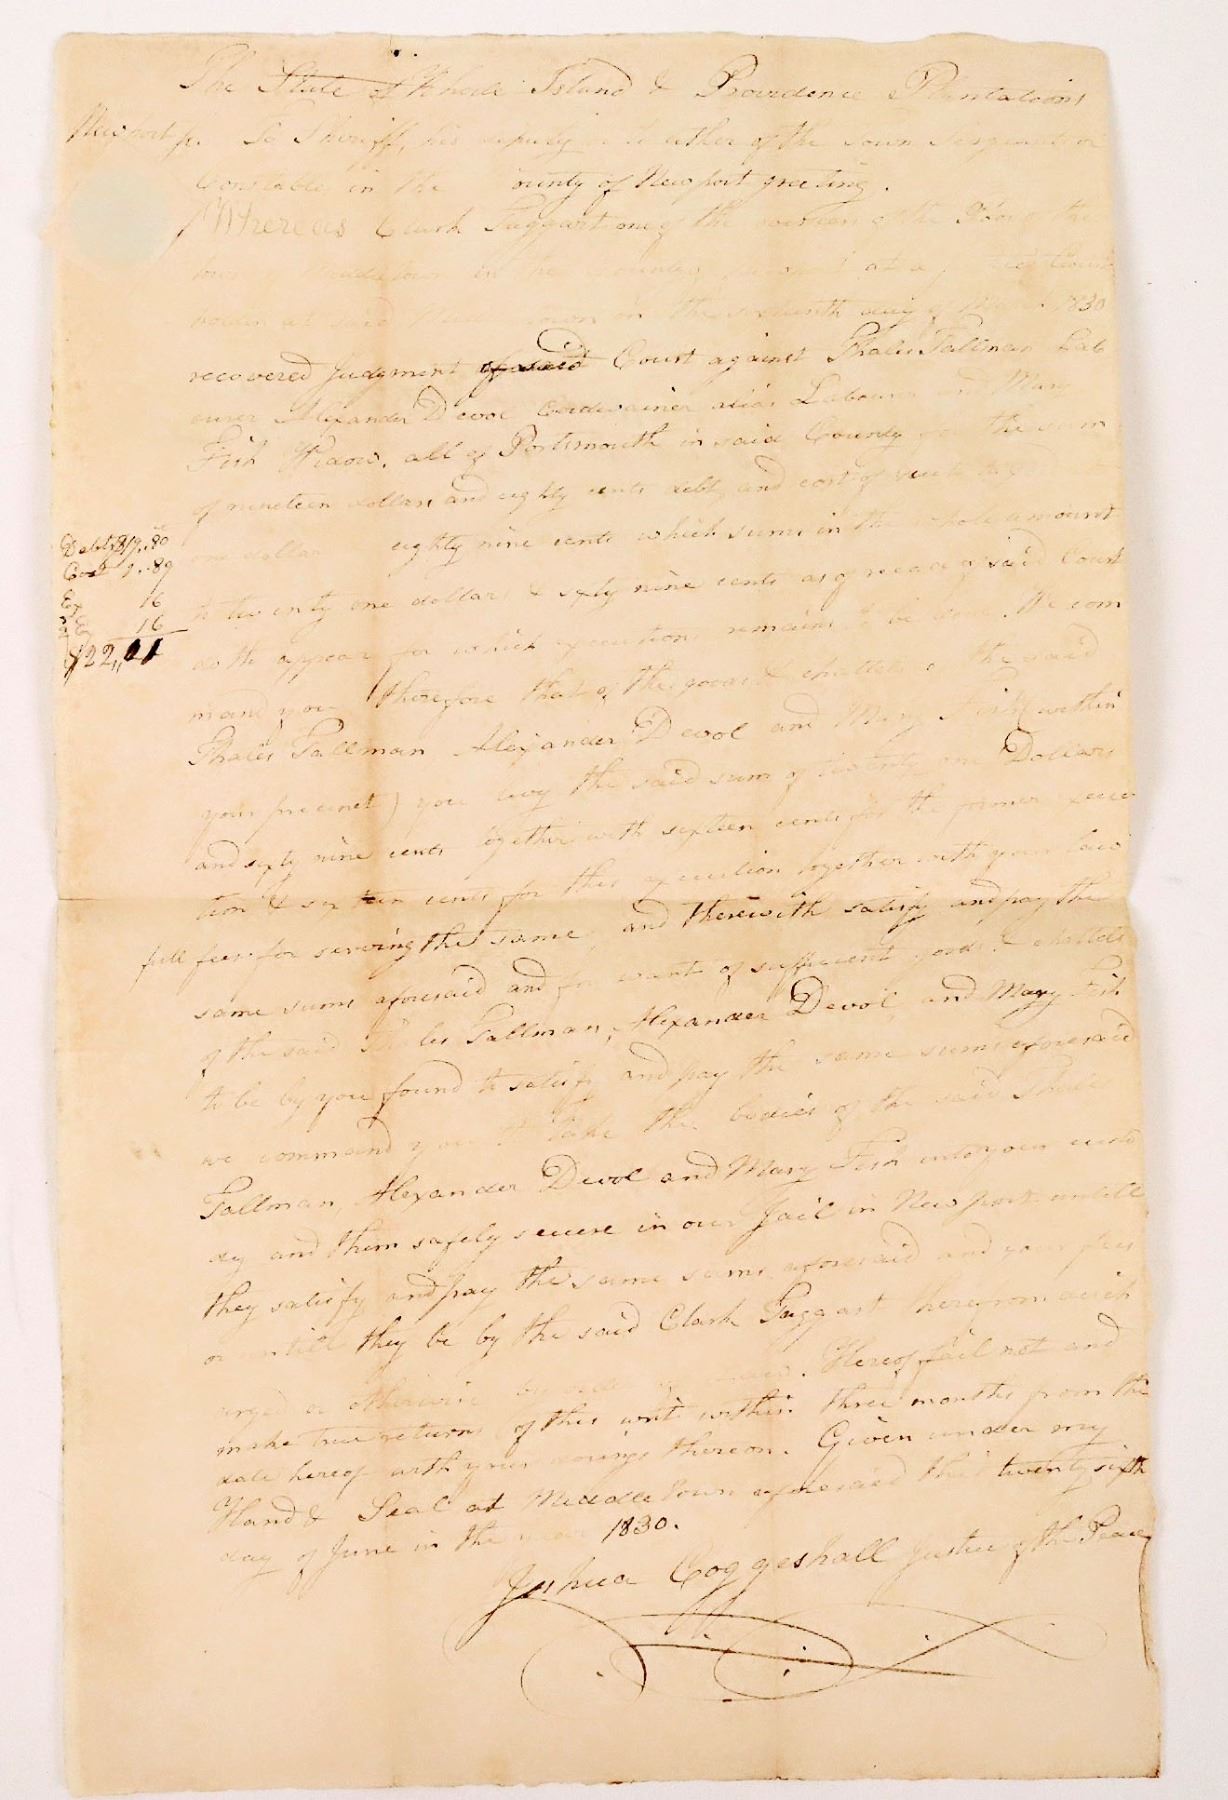 The State of Rhode Island & Providence Plantations
Newport Sc. To Sheriff, his deputy or to either of the town Sergeants or
Constables in the County of Newport greeting.
Whereas Clark Taggart one of the overseers of the Poor of the
town of Middletown in the County Newport at a Court
holden at said town on the seventh day of 1830
recovered Judgment of said Court against Thales Tallman Lab
ourer Alexander Devol Cordwainer alias Labourer and Mary
Fish Widow, all of Portsmouth in said County for the sum
of nineteen dollars and eighty cents debt and cost of suit
one dollar eighty nine cents which sums in the whole amount
to twenty one dollars & sixty nine cents as of record of said Court
doth appear for which execution remains to be done. We com
mand you therefore that of the goods & chattels of the said
Thales Tallman Alexander Devol and Mary Fish (within
your precinct) you levy the said sum of twenty one Dollars
and sixty nine cents together with sixteen cents for the former execu
tion & sixteen cents for this execution together with your law
full fees for serving the same, and therewith satisfy and pay the
same sums aforesaid and for want of sufficient goods & chattels
of the said Thales Tallman, Alexander Devol and Mary Fish
to be by you found to satisfy and pay the same sums aforesaid
we command you to take the bodies of the said Thales
Tallman, Alexander Devol and Mary Fish into your custo
dy and them safely secure in our Jail in Newport untill
they satisfy and pay the same sums aforesaid and your fees
or untill they be by the said Clark Taggart therefrom disch
arged or otherwise by order of Hereof fail not and
make true return of this writ within three months from the
date hereof with your doings thereon. Given under my
Hand & Seal at Middletown aforesaid this twenty sixth
day of June in the year 1830.
Joshua Coggeshall Justice of the Peace
Debt $19..80
Cost 1..89
Ex 16
2 Ex 16
$22,,01